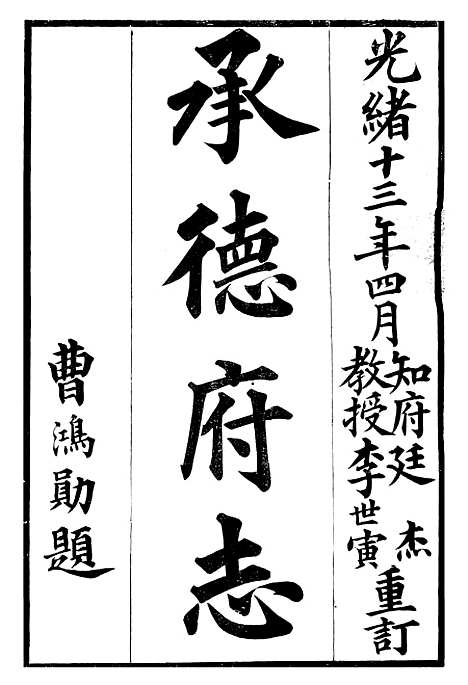 光緒十三年四月
知府廷杰
教授李世寅
重訂
承德府志
曹鴻勛題